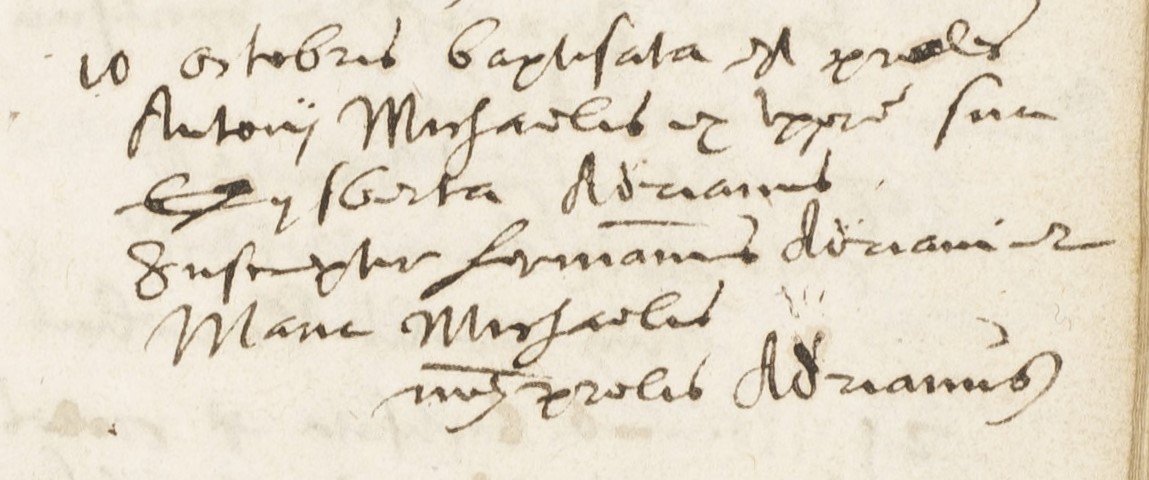 10 octobris baptisata est proles
Antonij Michaelis ex uxore sua
Gysberta Adrianus
Susceptor Hermanus Adriani et
Maria Michaelis
nomen prolis Adrianus